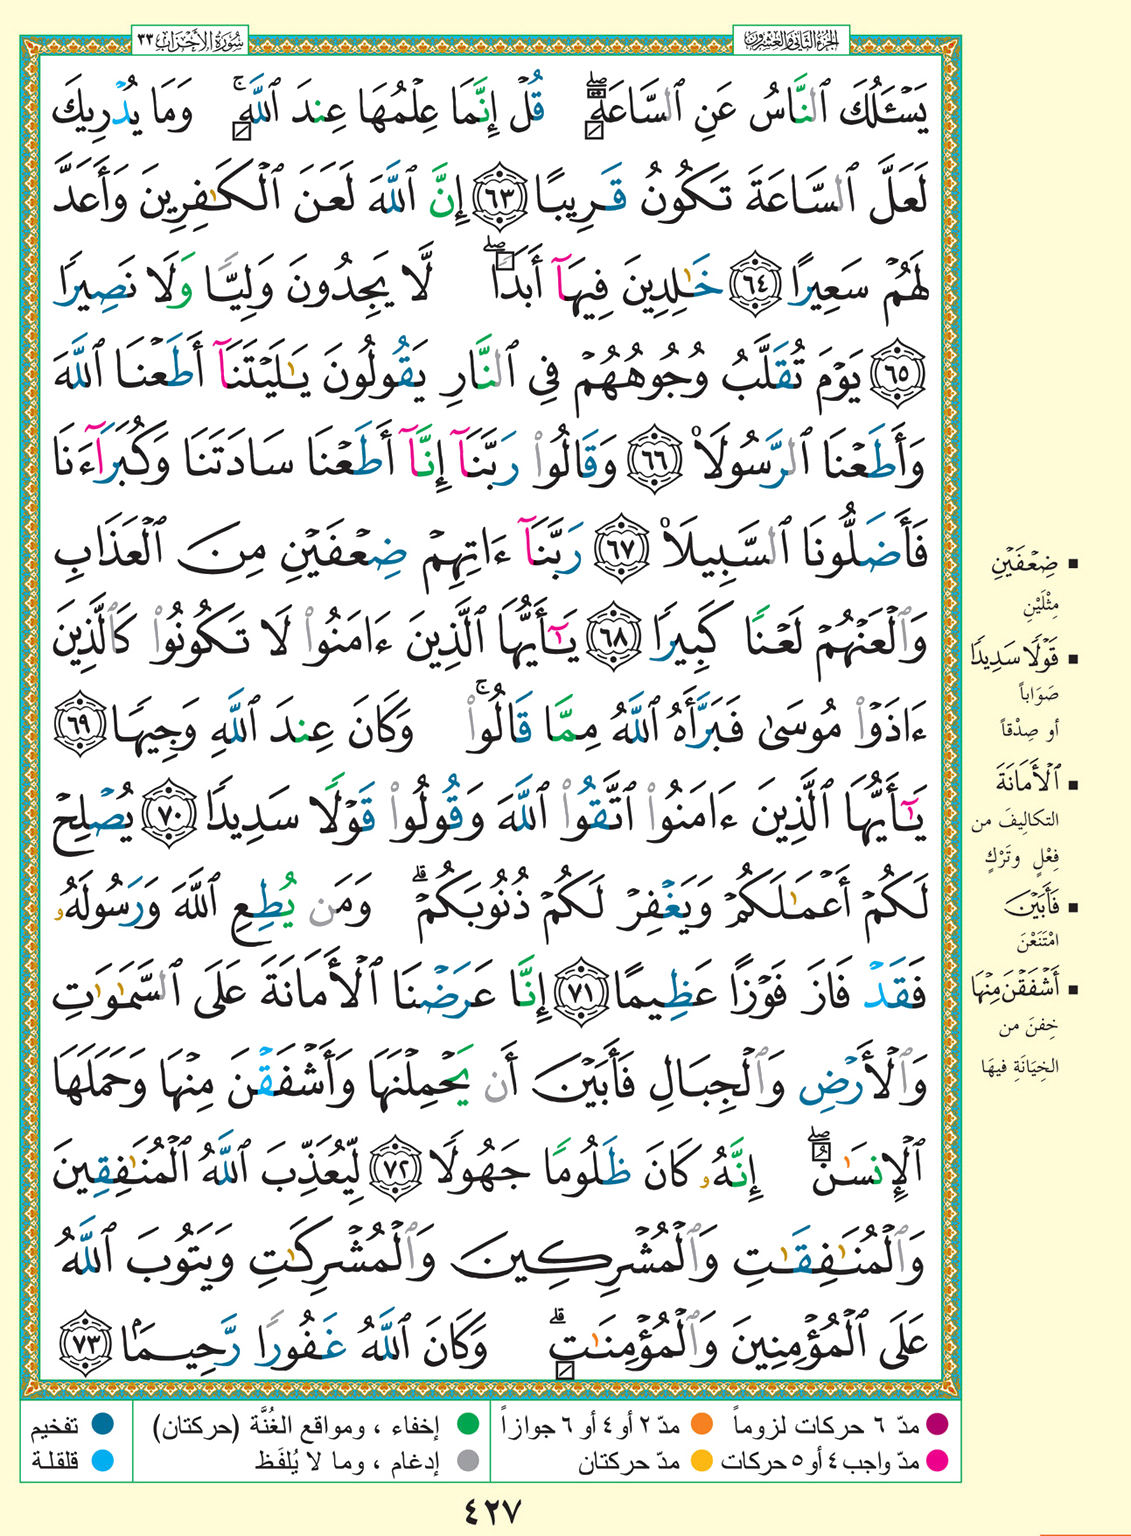 الجزء الثاني والعشرون
سُورَةُ الأَحْزَابِ ٣٣
يَسْـَٔلُكَ ٱلنَّاسُ عَنِ ٱلسَّاعَةِۖ قُلْ إِنَّمَا عِلْمُهَا عِندَ ٱللَّهِۚ وَمَا يُدْرِيكَ
لَعَلَّ ٱلسَّاعَةَ تَكُونُ قَرِيبًا ٦٣ إِنَّ ٱللَّهَ لَعَنَ ٱلْكَـٰفِرِينَ وَأَعَدَّ
لَهُمْ سَعِيرًا ٦٤ خَـٰلِدِينَ فِيهَآ أَبَدًاۖ لَّا يَجِدُونَ وَلِيًّا وَلَا نَصِيرًا
٦٥ يَوْمَ تُقَلَّبُ وُجُوهُهُمْ فِى ٱلنَّارِ يَقُولُونَ يَـٰلَيْتَنَآ أَطَعْنَا ٱللَّهَ
وَأَطَعْنَا ٱلرَّسُولَا۠ ٦٦ وَقَالُوا۟ رَبَّنَآ إِنَّآ أَطَعْنَا سَادَتَنَا وَكُبَرَآءَنَا
فَأَضَلُّونَا ٱلسَّبِيلَا۠ ٦٧ رَبَّنَآ ءَاتِهِمْ ضِعْفَيْنِ مِنَ ٱلْعَذَابِ
وَٱلْعَنْهُمْ لَعْنًا كَبِيرًا ٦٨ يَـٰٓأَيُّهَا ٱلَّذِينَ ءَامَنُوا۟ لَا تَكُونُوا۟ كَٱلَّذِينَ
ءَاذَوْا۟ مُوسَىٰ فَبَرَّأَهُ ٱللَّهُ مِمَّا قَالُوا۟ۚ وَكَانَ عِندَ ٱللَّهِ وَجِيهًا ٦٩
يَـٰٓأَيُّهَا ٱلَّذِينَ ءَامَنُوا۟ ٱتَّقُوا۟ ٱللَّهَ وَقُولُوا۟ قَوْلًا سَدِيدًا ٧٠ يُصْلِحْ
لَكُمْ أَعْمَـٰلَكُمْ وَيَغْفِرْ لَكُمْ ذُنُوبَكُمْۗ وَمَن يُطِعِ ٱللَّهَ وَرَسُولَهُۥ
فَقَدْ فَازَ فَوْزًا عَظِيمًا ٧١ إِنَّا عَرَضْنَا ٱلْأَمَانَةَ عَلَى ٱلسَّمَـٰوَٰتِ
وَٱلْأَرْضِ وَٱلْجِبَالِ فَأَبَيْنَ أَن يَحْمِلْنَهَا وَأَشْفَقْنَ مِنْهَا وَحَمَلَهَا
ٱلْإِنسَـٰنُۖ إِنَّهُۥ كَانَ ظَلُومًا جَهُولًا ٧٢ لِّيُعَذِّبَ ٱللَّهُ ٱلْمُنَـٰفِقِينَ
وَٱلْمُنَـٰفِقَـٰتِ وَٱلْمُشْرِكِينَ وَٱلْمُشْرِكَـٰتِ وَيَتُوبَ ٱللَّهُ
عَلَى ٱلْمُؤْمِنِينَ وَٱلْمُؤْمِنَـٰتِۗ وَكَانَ ٱللَّهُ غَفُورًا رَّحِيمًۢا ٧٣
▪ ضِعْفَيْنِ
مِثْلَيْنِ
▪ قَوْلًا سَدِيدًا
صَوَاباً
أو صِدْقاً
▪ ٱلْأَمَانَةَ
التكالِيفَ من
فِعْلٍ وتَرْكٍ
▪ فَأَبَيْنَ
امْتَنَعْنَ
▪ أَشْفَقْنَ مِنْهَا
خِفنَ من
الخِيَانَةِ فيهَا
مدّ ٦ حركات لزوماً
مدّ ٢ أو ٤ أو ٦ جوازاً
إخفاء ، ومواقع الغُنَّة (حركتان)
تفخيم
مدّ واجب ٤ أو ٥ حركات
مدّ حركتان
إدغام ، وما لا يُلفَظ
قلقلة
٤٢٧